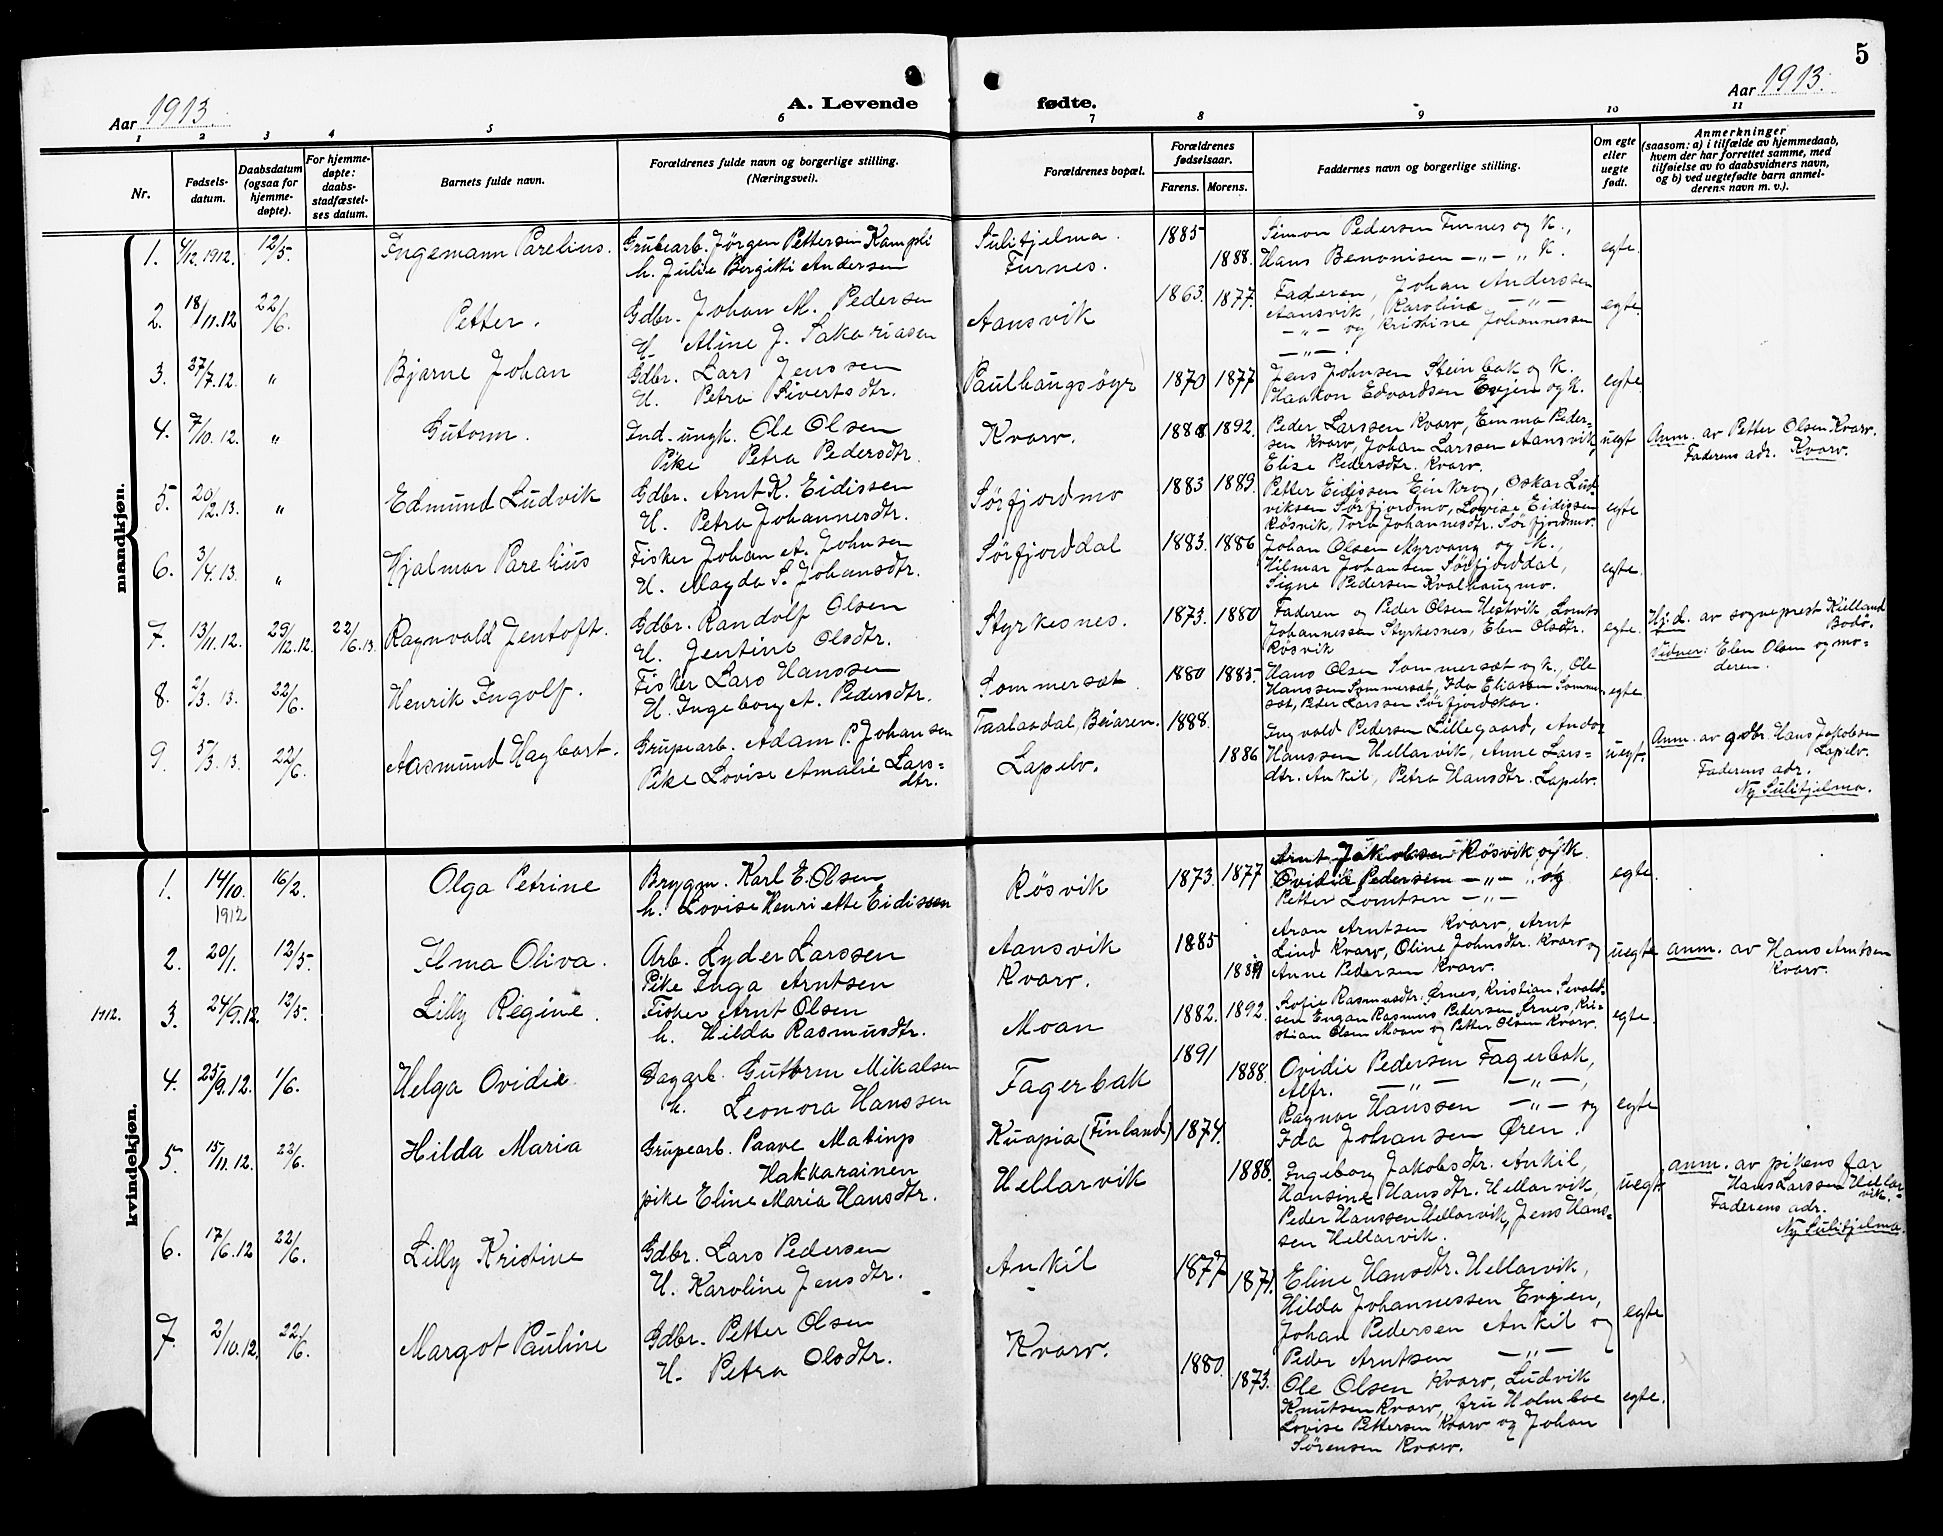 5
Aar 1913.
A. Levende fødte.
Aar 1913.
1 2 3 4 5 6 7 8 9 10 11
Nr.
Fødsels-
datum.
Daabsdatum
(ogsaa for
hjemme-
døpte).
For hjemme-
døpte:
daabs-
stadfæstel-
ses datum.
Barnets fulde navn.
Forældrenes fulde navn og borgerlige stilling.
(Næringsvei).
Forældrenes bopæl.
Forældrenes
fødselsaar.
Farens. Morens.
Faddernes navn og borgerlige stilling.
Om egte
eller
uegte
født.
Anmerkninger
(saasom: a) i tilfælde av hjemmedaab,
hvem der har forrettet samme, med
tilføielse av to daabsvidners navn,
og b) ved uegtefødte barn anmel-
derens navn m. v.).
mandkjøn.
1. 4/12. 1912. 12/5. Ingemann Parelius.
Grubearb. Jørgen Pettersen Kampli
h. Julie Bergitti Andersen
Sulitjelma.
Furnes.
1885 1888.
Simon Pedersen Furnes og K.,
Hans Benonisen -„- „ K.
egte.
2. 18/11. 12 22/6. Petter.
Gdbr. Johan M. Pedersen
H. Aline J. Sakariasen
Aansvik
1863. 1877.
Faderen, Johan Anderssen
Aansvik, Karoline -„-
-„- og Kristine Johannessen
-„-.
egte
3. 27/7. 12. „ Bjarne Johan
Gdbr. Lars Jenssen
H. Petra Sivertsdtr.
Paulhaugsøyr
1870 1877
Jens Johnsen Steinbak og K.
Haakon Edvardsen Evjen og K.
egte.
4. 7/10. 12. „ Gutorm.
Ind. ungk. Ole Olsen
Pike Petra Pedersdtr.
Kvarv.
1888 1892.
Peder Larssen Kvarv, Emma Peder-
sen Kvarv, Johan Larssen Aansvik,
Elise Pedersdtr. Kvarv.
uegt
Anm. av Petter Olsen Kvarv.
Faderens adr. Kvarv.
5. 20/2. 13. „ Edmund Ludvik
Gdbr. Arnt K. Eidissen
H. Petra Johannesdtr.
Sørfjordmo
1883 1889.
Petter Eidissen Einkrog, Oskar Lud-
viksen Sørfjordmo, Lovise Eidissen
Røsvik, Tora Johannesdtr. Sørfjordmo.
egte
6. 3/4. 13. „ Hjalmar Parelius
Fisker Johan A. Johnsen
H. Magda S. Johansdtr.
Sørfjorddal
1883. 1886
Johan Olsen Myrvang og K.,
Hilmar Johansen Sørfjorddal,
Signe Pedersen Kvalhaugmo.
egte.
7. 13/11. 12. 29/12. 12. 22/6. 13. Ragnvald Jentoft.
Gdbr. Randolf Olsen
H. Jentine Olsdtr.
Styrkesnes.
1873. 1880
Faderen og Peder Olsen Hestvik, Lomts
Johannessen Styrkesnes, Elen Olsdtr.
Røsvik
egte.
Hj. d. av sogneprest Kielland
Bodø.
Vidner: Elen Olsen og mo-
deren.
8. 2/3. 13. 22/6. Henrik Ingolf.
Fisker Lars Hanssen
H. Ingeborg A. Pedersdtr.
Sommerset
1880 1885.
Hans Olsen Sommerset og K., Ole
Hanssen Sommerset, Ida Eliassen Sommer-
set, Peder Larssen Sørfjordskar.
egte.
9. 5/3. 13. 22/6. Aasmund Hagbart.
Grupearb. Adam P. Johansen
Pike Lovise Amalie Lars-
dtr.
Taalaadal, Beiaren.
Lapelv.
1888. 1886
Ingvald Pedersen Lillegaard, Andor
Hanssen Hellarvik, Anne Lars-
dtr. Ankil, Petra Hansdtr. Lapelv.
uegt.
Anm. av gdbr. Hans Jakobsen
Lapelv.
Faderens adr.
Ny Sulitjelma.
kvindekjøn.
1. 14/10. 1912 16/2. Olga Petrine
Brygm. Karl E. Olsen
h. Lovise Henriette Eidissen
Røsvik
1873. 1877
Arnt Jakobsen Røsvik og K.
Ovidie Pedersen -„- „ og
Petter Lomtsen -„-
egte.
2. 20/1. 12/5. Ilma Oliva.
Arb. Lyder Larssen
Pike Inga Arntsen
Aansvik
Kvarv.
1885
Aron Arntsen Kvarv, Arnt
Lind Kvarv, Oline Johnsdtr. Kvarv og
Anne Pedersen Kvarv.
uegte
anm. av Hans Arntsen
Kvarv.
1912.
3. 24/9. 12. 12/5. Lilly Regine.
Fisker Arnt Olsen
h. Hilda Rasmusdtr.
Moan
1882. 1892.
Sofie Rasmusdtr. Ørnes, Kristian Sevald-
sen Engan, Rasmus Pedersen Ørnes, Kri-
stian Olsen Moan og Petter Olsen Kvarv.
egte.
4. 25/9. 12. 1/6. Helga Ovidie.
Dagarb. Guttorm Mikalsen
h. Leonora Hanssen
Fagerbak
1891 1888.
Ovidie Pedersen Fagerbak,
Alfr. -„- -„-,
Ragna Hanssen -„- og
Ida Johansen Øren.
egte
5. 15/11. 12. 22/6. Hilda Maria
Grupearb. Paave Matinp
Hakkarainen
pike Eline Maria Hansdtr.
Kuapia (Finland)
Hellarvik
1874. 1888.
Ingeborg Jakobsdtr. Ankil,
Hansine Hansdtr. Hellarvik,
Peder Hanssen Hellarvik, Jens Hans-
sen Hellarvik.
uegt.
anm. av pikens far
Hans Larssen Hellar-
vik.
Faderens adr.
Ny Sulitjelma.
6. 17/6. 12 22/6. Lilly Kristine
Gdbr. Lars Pedersen
H. Karoline Jensdtr.
Ankil
1877 1871.
Eline Hansdtr. Hellarvik,
Hilda Johannessen Evjen,
Johan Pedersen Ankil og
Peder Arntsen -„-
egte
7. 2/10. 12. 22/6. Margot Pauline
Gdbr. Petter Olsen
H. Petra Olsdtr.
Kvarv.
1880. 1873.
Ole Olsen Kvarv, Ludvik
Knutsen Kvarv, fru Holmboe
Lovise Pettersen Kvarv og Johan
Sørensen Kvarv.
egte.